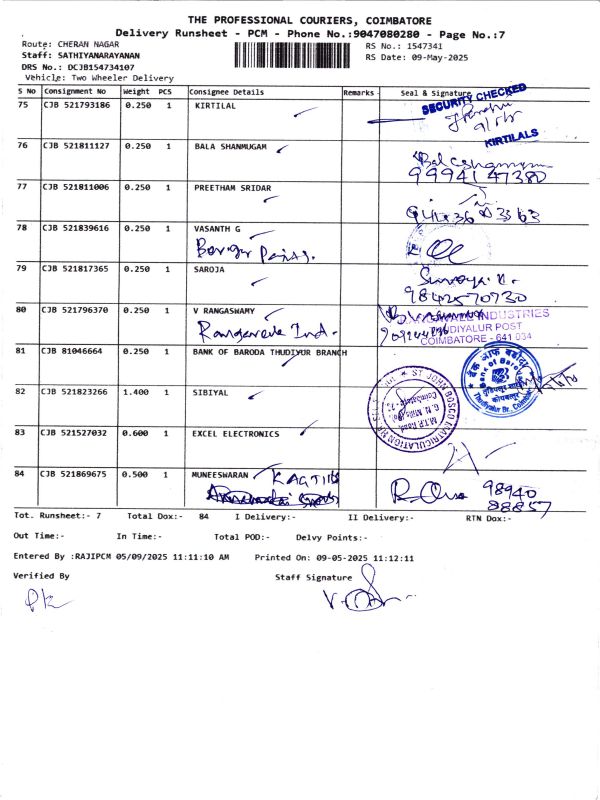 THE PROFESSIONAL COURIERS, COIMBATORE
Delivery Runsheet - PCM - Phone No.:9047080280 - Page No.:7
Route: CHERAN NAGAR
RS No.: 1547341
Staff: SATHIYANARAYANAN
RS Date: 09-May-2025
DRS No.: DCJB154734107
Vehicle: Two Wheeler Delivery
S No Consignment No Weight PCS Consignee Details Remarks Seal & Signature
SECURITY CHECKED
75 CJB 521793186 0.250 1 KIRTILAL
KIRTILALS
76 CJB 521811127 0.250 1 BALA SHANMUGAM
99941 47380
77 CJB 521811006 0.250 1 PREETHAM SRIDAR
78 CJB 521839616 0.250 1 VASANTH G
79 CJB 521817365 0.250 1 SAROJA
9842570730
80 CJB 521796370 0.250 1 V RANGASWAMY
INDUSTRIES
THUDIYALUR POST
COIMBATORE - 641 034
81 CJB 81046664 0.250 1 BANK OF BARODA THUDIYUR BRANCH
बैंक ऑफ बड़ौदा
Bank of Baroda
Thudiyalur Br., Coimbatore
82 CJB 521823266 1.400 1 SIBIYAL
ST. JOHN BOSCO MATRICULATION
M.T.P. Road
G. N. Mills
Coimbatore
83 CJB 521527032 0.600 1 EXCEL ELECTRONICS
84 CJB 521869675 0.500 1 MUNEESWARAN
98940
88857
Tot. Runsheet:- 7 Total Dox:- 84 I Delivery:- II Delivery:- RTN Dox:-
Out Time:- In Time:- Total POD:- Delvy Points:-
Entered By :RAJIPCM 05/09/2025 11:11:10 AM Printed On: 09-05-2025 11:12:11
Verified By Staff Signature